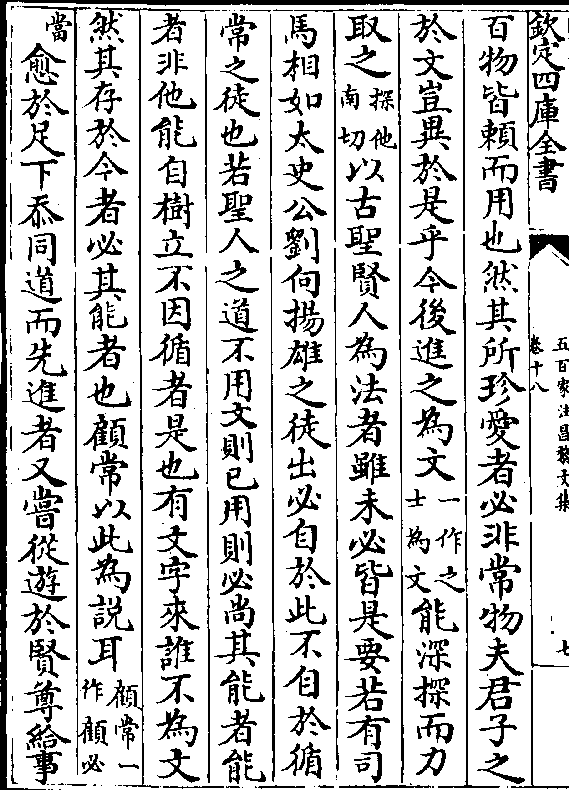 欽定四庫全書
五百家注昌黎文集
卷十八
七
百物皆賴而用也然其所珍愛者必非常物夫君子之
於文豈異於是乎今後進之為文一作之士為文能深探而力
取之探他南切以古聖賢人為法者雖未必皆是要若有司
馬相如太史公劉向揚雄之徒出必自於此不自於循
常之徒也若聖人之道不用文則已用則必尚其能者能
者非他能自樹立不因循者是也有文字來誰不為文
然其存於今者必其能者也顧常以此為說耳顧常一作顧必
當愈於足下忝同道而先進者又嘗從遊於賢尊給事